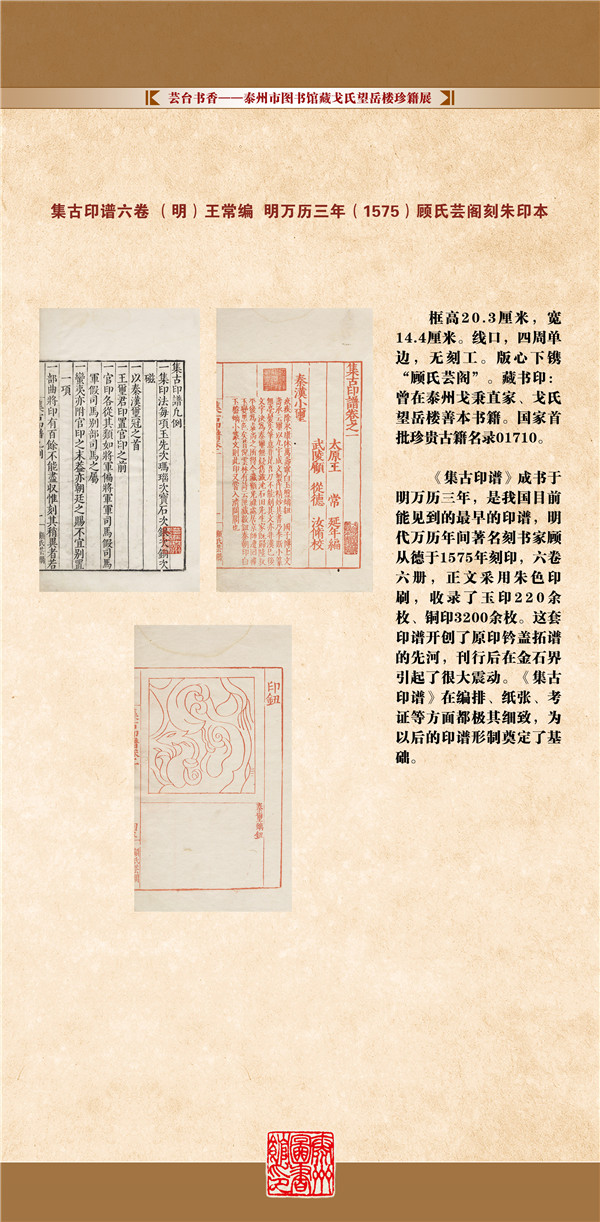 芸台书香——泰州市图书馆藏戈氏望岳楼珍籍展
集古印谱六卷（明）王常编 明万历三年（1575）顾氏芸阁刻朱印本
框高20.3厘米，宽
14.4厘米。线口，四周单
边，无刻工。版心下镌
“顾氏芸阁”。藏书印：
曾在泰州戈秉直家、戈氏
望岳楼善本书籍。国家首
批珍贵古籍名录01710。
《集古印谱》成书于
明万历三年，是我国目前
能见到的最早的印谱，明
代万历年间著名刻书家顾
从德于1575年刻印，六卷
六册，正文采用朱色印
刷，收录了玉印220余
枚、铜印3200余枚。这套
印谱开创了原印钤盖拓谱
的先河，刊行后在金石界
引起了很大震动。《集古
印谱》在编排、纸张、考
证等方面都极其细致，为
以后的印谱形制奠定了基
础。
集古印譜凡例
一集印法每項玉先次瑪瑙次寶石次銀次銅次
磁
一以秦漢璽冠之首
一王璽君印置官印之前
一官印各從其類如將軍偏將軍軍司馬假司馬
軍假司馬別部司馬之屬
一蠻夷亦附官印之末蓋亦朝廷之賜不宜別置
一項
一部曲將印有百餘不能盡收惟刻其稍異者若
集古印譜卷之一
太原王 常 延年編
武陵顧 從德 汝脩校
秦漢小璽
印鈕
秦璽螭鈕
泰州圖書館印